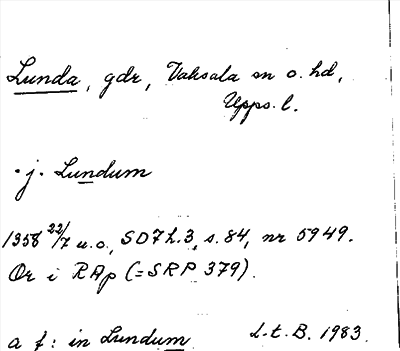 Lunda, gdr, Vaksala sn o. hd,
Upps. l.
·j· Lundum
1358 22/7 u.o., SD 7 h. 3, s. 84, nr 5949.
Or i RAp (=SRP 379).
a f: in Lundum L.t.B. 1983.